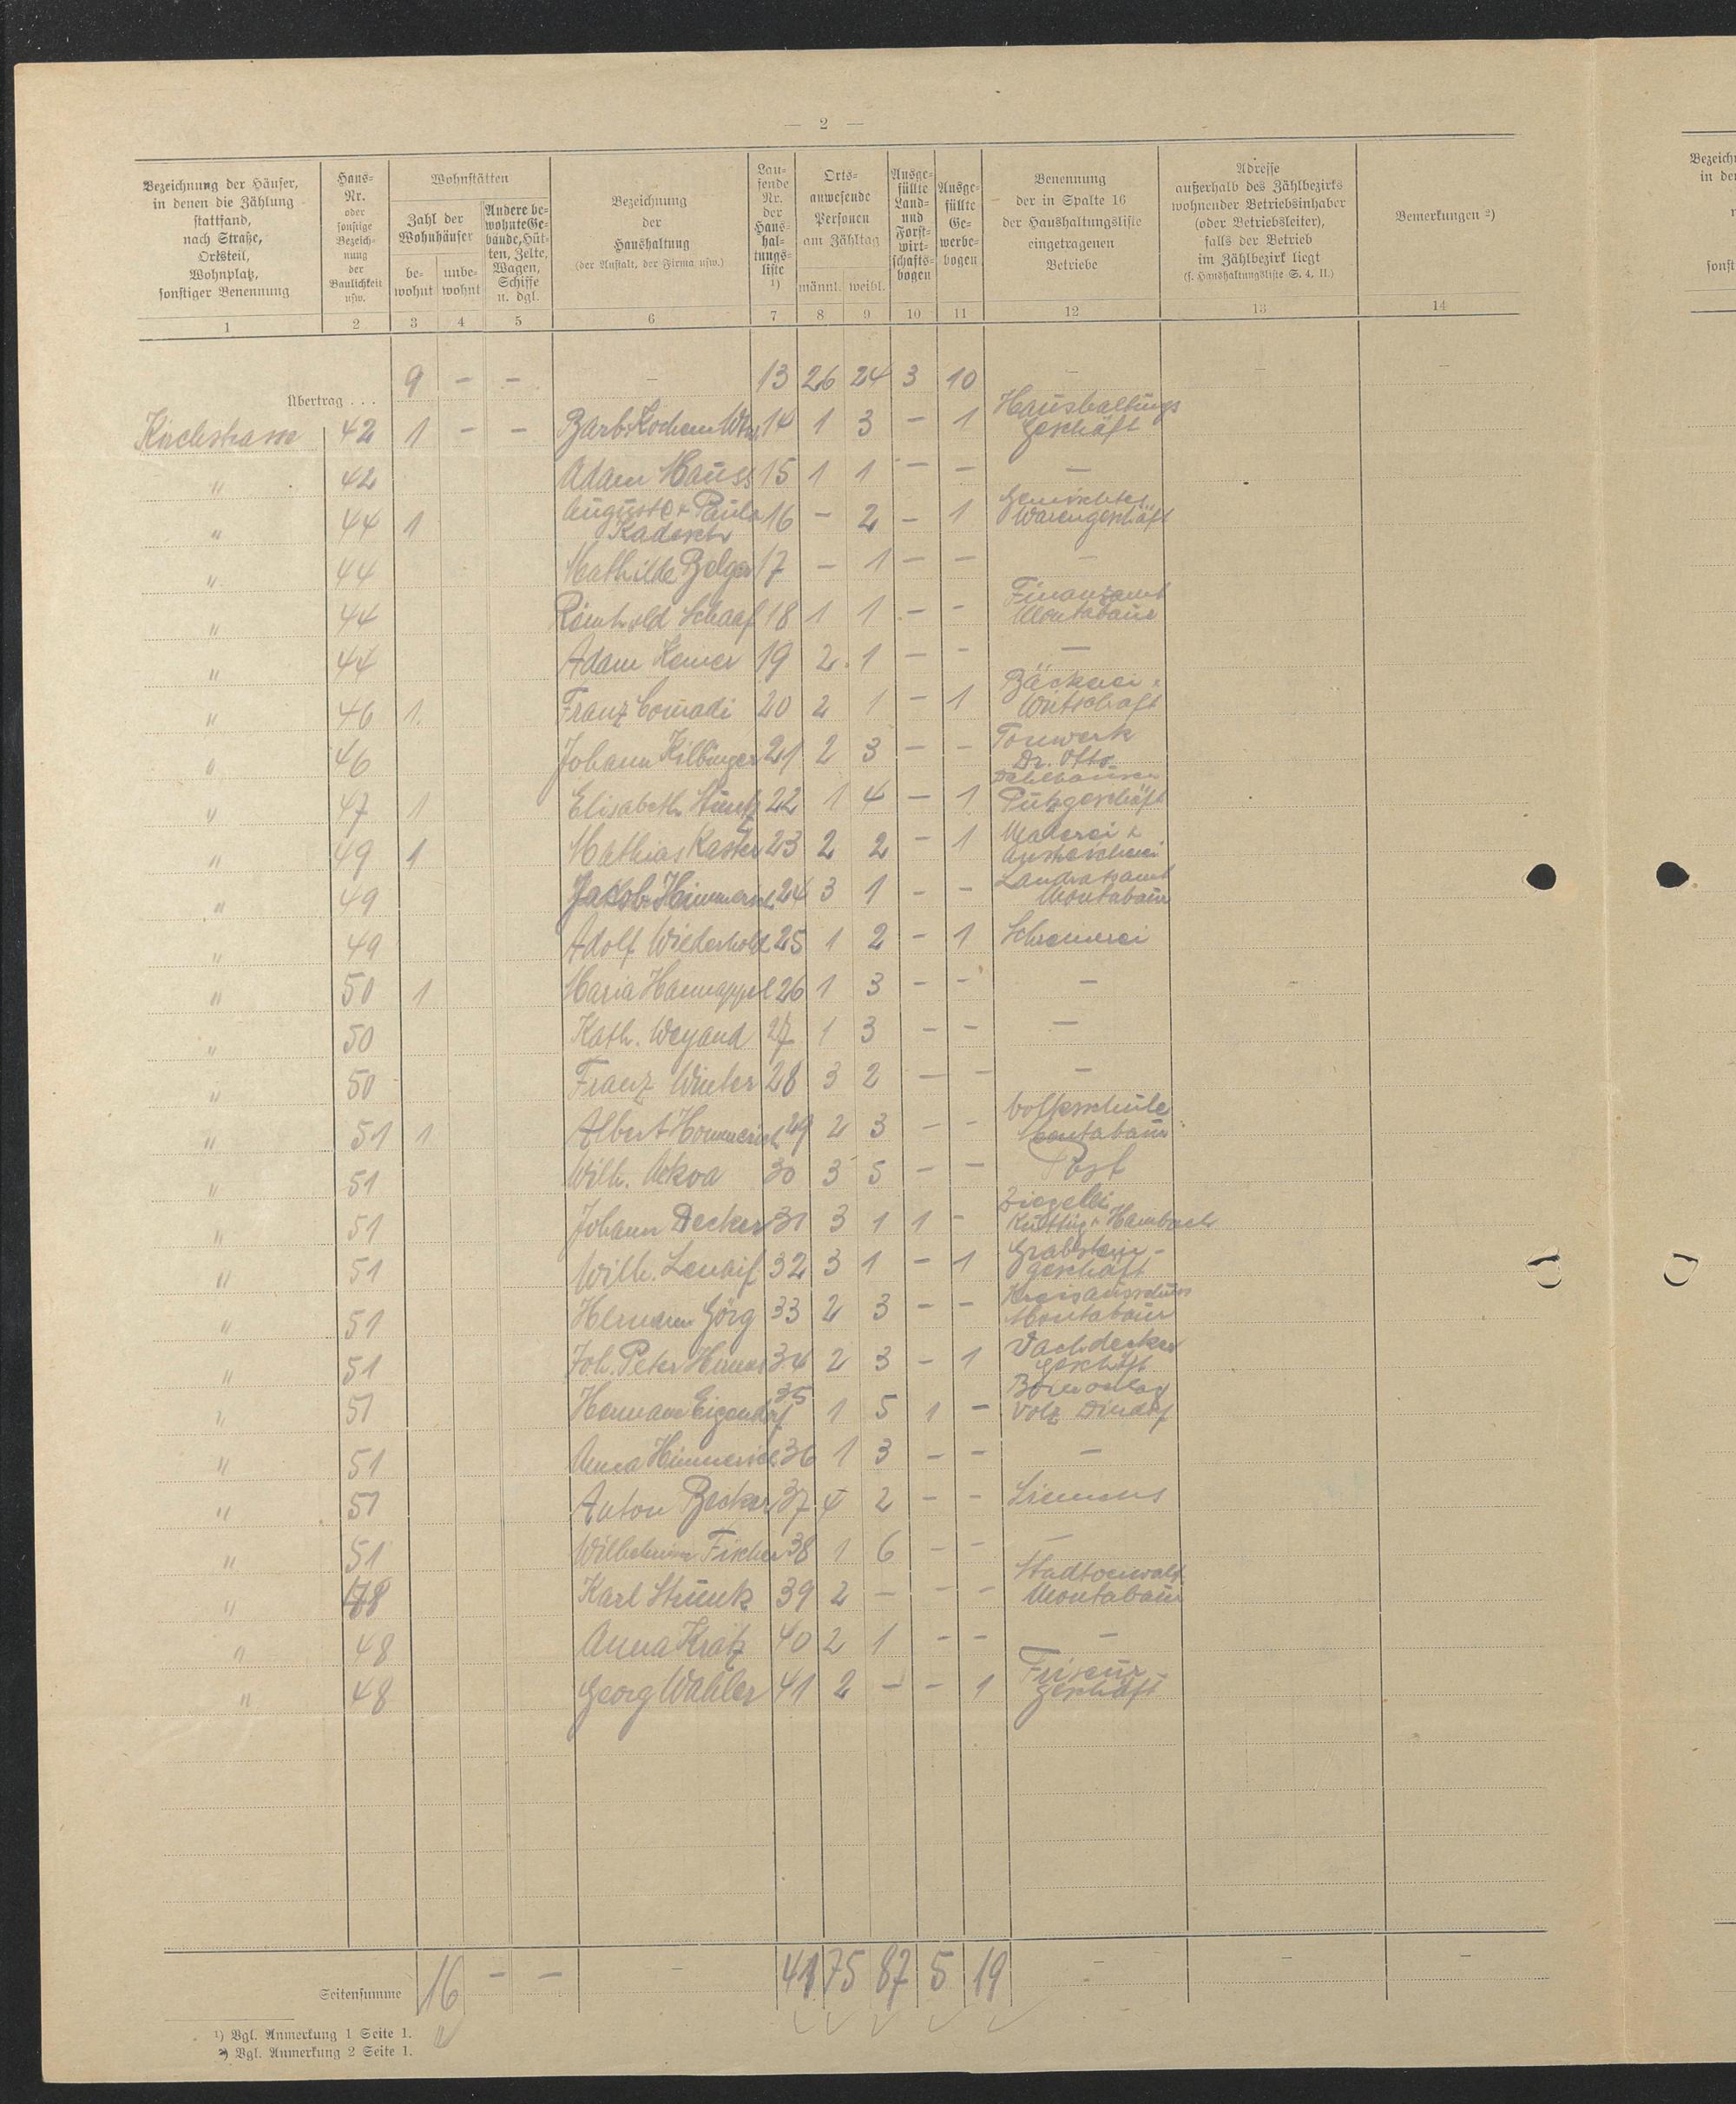 — 2 —
Bezeichnung der Häuser,
in denen die Zählung
stattfand,
nach Straße,
Ortsteil,
Wohnplatz,
sonstiger Benennung
Haus-
Nr.
oder
sonstige
Bezeich-
nung
der
Baulichkeit
usw.
Wohnstätten
Zahl der
Wohnhäuser
be-
wohnt
unbe-
wohnt
Andere be-
wohnte Ge-
bäude, Hüt-
ten, Zelte,
Wagen,
Schiffe
u. dgl.
Bezeichnung
der
Haushaltung
(der Anstalt, der Firma usw.)
Lau-
fende
Nr.
der
Haus-
hal-
tungs-
liste
1)
Orts-
anwesende
Personen
am Zähltag
männl. weibl.
Ausge-
füllte
Land-
und
Forst-
wirt-
schafts-
bogen
Ausge-
füllte
Ge-
werbe-
bogen
Benennung
der in Spalte 16
der Haushaltungsliste
eingetragenen
Betriebe
Adresse
außerhalb des Zählbezirks
wohnender Betriebsinhaber
(oder Betriebsleiter),
falls der Betrieb
im Zählbezirk liegt
(s. Haushaltungsliste S. 4, II.)
Bemerkungen 2)
1 2 3 4 5 6 7 8 9 10 11 12 13 14
Übertrag . . . 9 – – – 13 26 24 3 10 – – –
Kirchstrasse 42 1 – – Barb. Kochem Wtw. 14 1 3 – 1 Haushaltungs
geschäft
" 42 Adam Hauss 15 1 1 – – –
" 44 1 Auguste + Paula 16 – 2 – 1 Gemischtes
Kadesch Warengeschäft
" 44 Mathilde Belger 17 – 1 – – –
" 44 Reinhold Schaaf 18 1 1 – – Finanzamt
Montabaur
" 44 Adam Hemer 19 2 1 – – –
" 46 1 Franz Conradi 20 2 1 – 1 Bäckerei +
Wirtschaft
" 46 Johann Kilbinger 21 2 3 – – Tonwerk
Dr. Otto
Dahlhausen
" 47 1 Elisabeth 22 1 4 – 1 Putzgeschäft
" 49 1 Mathias Kaster 23 2 2 – 1 Malerei +
Anstreicherei
" 49 Jakob Himmerich 24 3 1 – – Landratsamt
Montabaur
" 49 Adolf Wiederhold 25 1 2 – 1 Schreinerei
" 50 1 Maria Hannappel 26 1 3 – – –
" 50 Kath. Weyand 27 1 3 – – –
" 50 Franz Winter 28 3 2 – – –
" 51 1 Albert Hommerich 29 2 3 – – Volksschule
Montabaur
" 51 Wilh. 30 3 5 – – Post
" 51 Johann Decker 31 3 1 1 – Ziegelei
Hambach
" 51 Wilh. 32 3 1 – 1 Grabstein-
geschäft
" 51 Hermann Görg 33 2 3 – – Kreisausschuss
Montabaur
" 51 Joh. Peter 34 2 3 – 1 Dachdecker
geschäft
" 51 Hermann Eigendorf 35 1 5 1 –
Volz Dindorf
" 51 Anna Himmerich 36 1 3 – – –
" 51 Anton Becker 37 4 2 – – Siemens
" 51 Wilhelmine Fischer 38 1 6 – – –
" 48 Karl Strunk 39 2 – – –
Montabaur
" 48 Anna Kratz 40 2 1 – – –
" 48 Georg Wahler 41 2 – – 1 Friseur-
geschäft
Seitensumme 16 – – – 41 75 87 5 19 – – –
1) Vgl. Anmerkung 1 Seite 1.
2) Vgl. Anmerkung 2 Seite 1.
Bezeich
in de
sonst